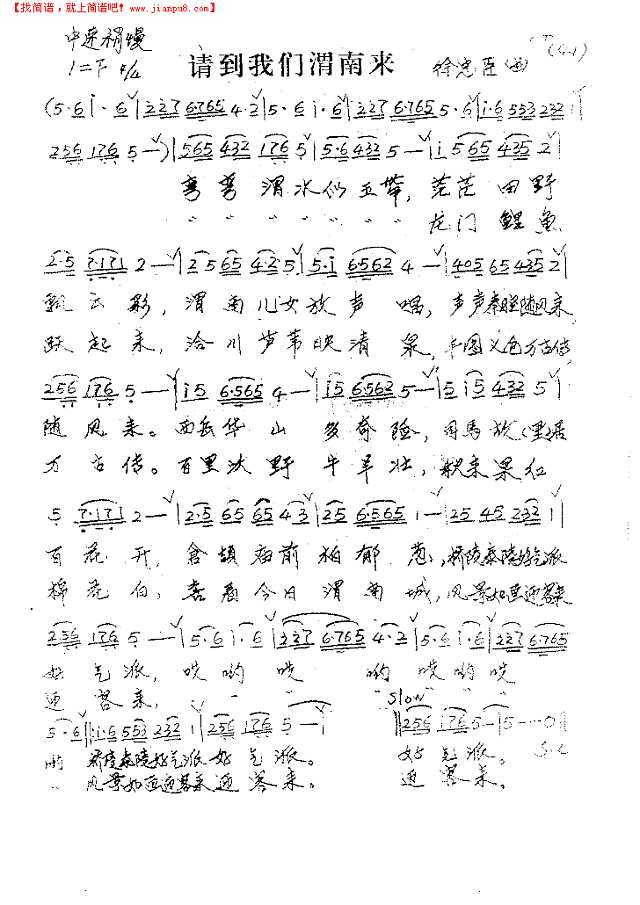 【找简谱，就上简谱吧！www.jianpu8.com】
中速稍慢
请到我们渭南来
1=F 4/4
(5·6 i·6|227 6765 4·2|5·6 i·6|227 6765 5·6|i·6 553 232 1|
256 176 5—)|565 432 176 5|5·6 432 5—|i 565 435 2|
弯弯 渭水似玉带，茫茫 田野
龙门 鲤鱼
2·5 7·171 2—|2565 4·25|5·i 6562 4—|405 65 432 2|
飘云彩，渭南儿女放声 唱，声声秦腔随风来
跃起来，洽川芦苇映清 泉，
256 176 5—|i5 6·765 4—|i5 6·562 5—|5 i5 432 5|
随风来。西岳华 山 多奇险，司马故里居
万古传。百里沃 野 牛羊壮，歌来果红
5 7·171 2—|2·5 65 65 43|25 6·565 1—|25 45 232 1|
百花开，仓颉庙前柏郁 葱，桥陵泰陵好气派
棉花白，喜看今日渭南城，风景如画迎客来
256 176 5—|5·6 i·6|227 6·765 4·2|5·6 i·6|227 6·765
好气派，哎哟哎 哟哎哟哎
迎客来，
Slow
5·6|i·6 553 232 1|256 176 5—i| ‖256 176 5—|5—·0‖
哟 桥陵泰陵好气派好气派。 好气派。
风景如画迎客来迎客来。 迎客来。